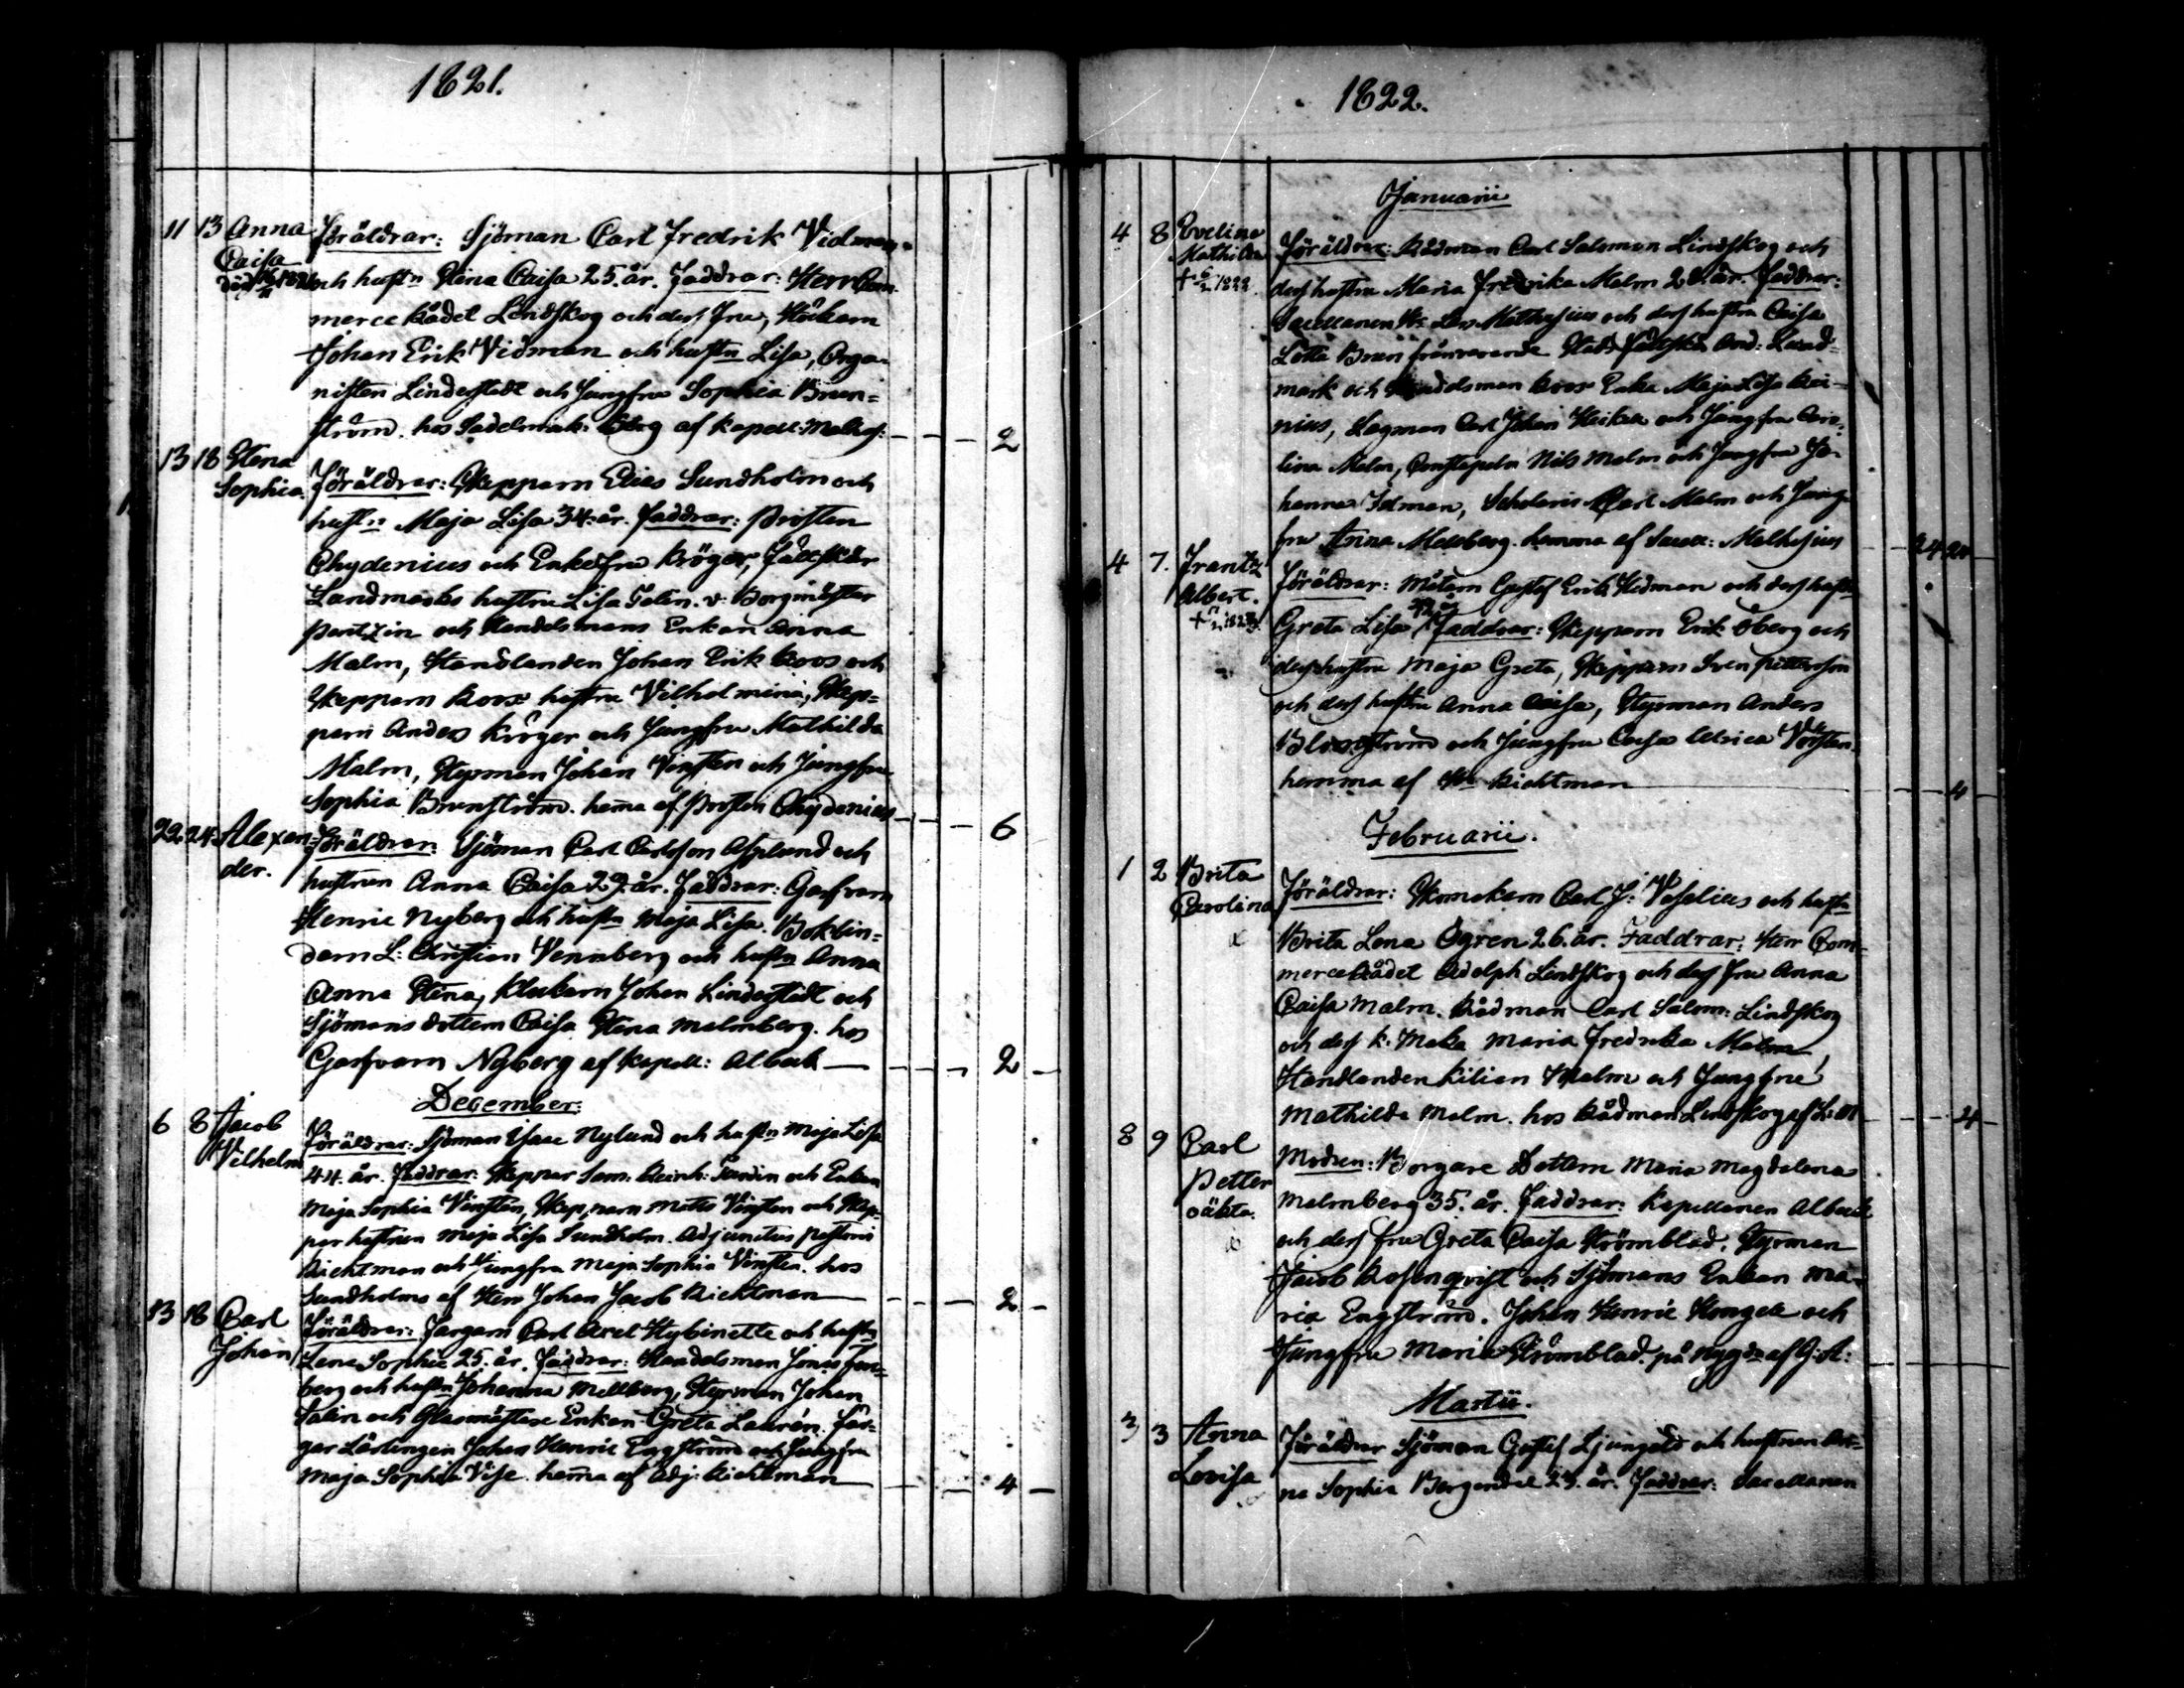 1821.
11 13 Anna Caisa Föräldrar: Sjöman Carl Fredrik Vidman
och hustn Stina Caisa 25. år. Faddrar: Herr Com-
merce Rådet Lindskog och dess fru, Hökarn
Johan Erik Vidman och hustn Lisa, Orga-
nisten Lindestedt och Jungfru Sophia Brun-
ström. hos Sadelmak: Berg af Kapell: 2
13 18 Stena Sophia. Föräldrar: Skepparn Elias Sundholm och
hustn Maja Lisa 34. år. Faddrar: Prosten
Chydenius och Enkefru Kröger, Fältskär
Landmarks hustru Lisa Falin. v: Borgmästar
och Handelsmans Enkan Anna
Malm, Handlanden Johan Erik Roos och
Skepparn Roos hustru Vilhelmina, Skep-
parn Anders Kröger och Jungfru Mathilda
Malm, Styrman Johan Vinsten och Jungfru
Sophia Brunström. hema af Prosten Chydenius 6
22 24 Alexan-der. Föräldrar: Sjöman Carl Carlsson Asplund och
hustrun Anna Caisa 29 år. Faddrar: Garfvarn
Henric Nyberg och hustn Maja Lisa. Bokbin-
darn L: Christian Vennberg och hustn Anna
Anna Stina, Klockarn Johan Lindestedt och
Sjömans dottern Caisa Stena Malmberg. hos
Garfvarn Nyberg af Kapell: Alback 2
December:
6 8 Jacob Vilhelm Föräldrar: Sjöman Isaac Nylund och hustn Maja Lisa
44. år. Faddrar: Skeppar Sam: och Enkan
Maja Sophia Vinsten, Skepparn Matts Vinsten och Skep-
par hustrun Maja Lisa Sundholm. Adjunctus Pastoris
Richtman och Jungfru Maja Sophia Vinsten. hos
Sundholms af Herr Johan Jacob Richtman 2
13 18 Carl Johan Föräldrar: Färgarn Carl Axel Hybinette och hustn
Lena Sophia 25. år. Faddrar: Handelsman Jonas
berg och hustn Johanna Mellberg, Styrman Johan
Falin och Glasmästare Enkan Greta Laurén. Fär-
gar Lärlingen Johan Henric Engström och Jungfru
Maja Sophia Vise. hema af Adj: Richtman 4
1822.
Januarii
4 8 Evelina Mathilda + 6/2 1822. Föräldrar: Rådman Carl Salomon Lindskog och
dess hustru Maria Fredrika Malm 20. år. Faddrar:
Sacellanen Hr Mathesius och dess hustru Caisa
Lotta Brun frånvarande Stads Fältskär And: Land-
mark och Handelsman Roos Enka Maja Lisa
nius, Lagman Carl Johan och Jungfru Caro-
lina Malm, Constapeln Nils Malm och Jungfru Jo-
hanna Idman, Scholaris Carl Malm och Jung-
fru Anna Mellberg. hemma af Sacell: Mathesius 24 20
4 7. Frantz Albert. Föräldrar: Målarn Gustof Erik Hedman och dess hustru
Greta Lisa Faddrar: Skepparn Erik Öberg och
dess hustru Maja Greta, Skepparn Sven Pettersson
och dess hustru Anna Caisa, Styrman Anders
Blomström och Jungfru Caisa Ulrica Vinsten.
hemma af Hr Richtman 4
Februarii.
1 2 Brita Carolina Föräldrar: Skomakarn Carl J: Vaselius och hustr
Brita Lena Ögren 26. år. Faddrar: Herr Com-
merceRådet Adolph Lindskog och dess fru Anna
Caisa Malm. Rådman Carl Salom: Lindskog
och dess k: Maka Maria Fredrika Malm,
Handlanden Kilian Malm och Jungfru
Mathilda Malm. hos Rådman Lindskog af L: M 4
8 9 Carl Petter oäkta. Modren: Borgare Dottern Maria Magdalena
Malmberg 35. år. Faddrar: Kapellanen Alback
och dess fru Greta Caisa Strömblad. Styrman
Jacob Rosenqvist och Sjömans Enkan Ma-
ria Engström. Johan Henric Kongell och
Jungfru Maria Strömblad. på af G: A:
Martii.
3 3 Anna Lovisa Föräldrar Sjöman Gustof Ljungald och hustrun An-
na Sophia Bergendal 23. år. Faddrar: Sacellanen